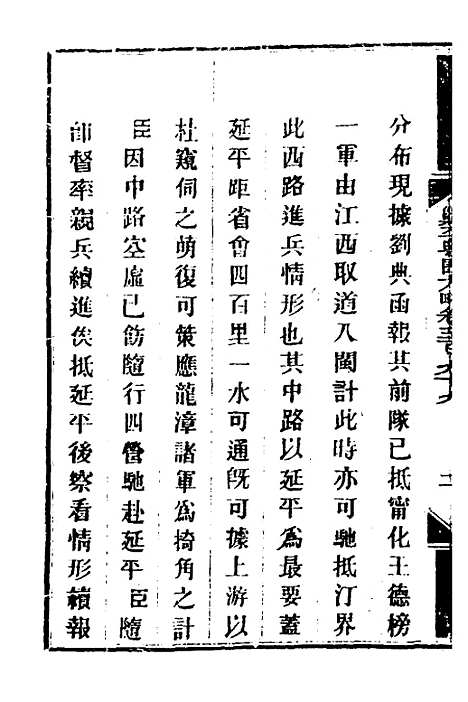 分布現據劉典函報其前隊已抵甯化王德榜
一軍由江西取道入閩計此時亦可馳抵汀界
此西路進兵情形也其中路以延平爲最要蓋
延平距省會四百里一水可通旣可據上游以
杜窺伺之萌復可策應龍漳諸軍爲掎角之計
臣因中路空虛已飭隨行四營馳赴延平臣隨
卽督率親兵續進俟抵延平後察看情形續報